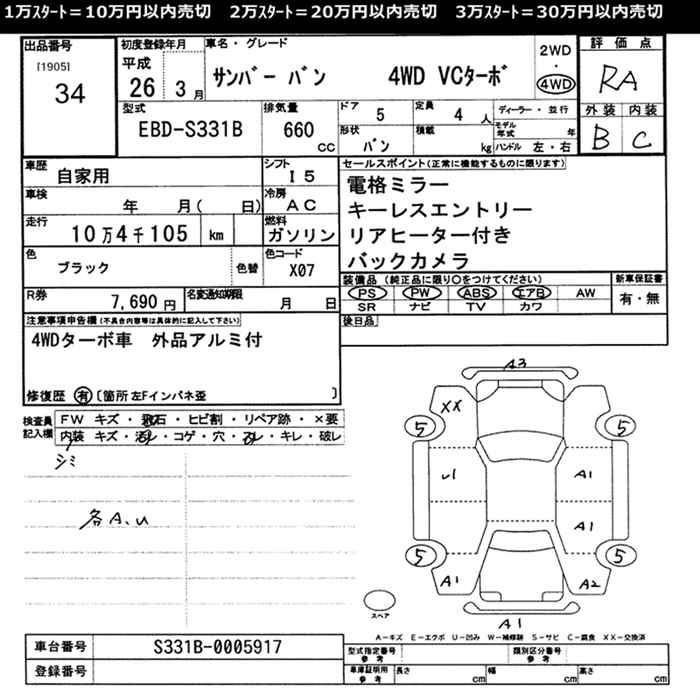 1万ｽﾀｰﾄ＝10万円以内売切　2万ｽﾀｰﾄ＝20万円以内売切　3万ｽﾀｰﾄ＝30万円以内売切
出品番号
[1905]
34
初度登録年月
平成
26 3月
車名・グレード
サンバー バン 4WD VCターボ
2WD
・
4WD
評価点
RA
外装 内装
B C
型式
EBD-S331B
排気量
660
CC
ドア
5
定員
4 人
ディーラー・並行
形状
バン
積載
kg
モデル年式 年
ハンドル 左・右
車歴
自家用
シフト
I5
車検
年 月( 日)
冷房
AC
走行
10万4千105 km
燃料
ガソリン
色
ブラック
色替
色コード
X07
R券
7,690円
名変通知期限
月 日
セールスポイント(正常に機能するものに限ります)
電格ミラー
キーレスエントリー
リアヒーター付き
バックカメラ
装備品(純正品に限り○をつけてください)
PS PW ABS エアB AW
SR ナビ TV カワ
新車保証書
有・無
後日品
注意事項申告欄(不具合内容等は具体的に記入して下さい)
4WDターボ車 外品アルミ付
修復歴 有〔箇所 左Fインパネ歪 〕
検査員
記入欄
FW キズ・飛石・ヒビ割・リペア跡・×要
内装 キズ・汚レ・コゲ・穴・スレ・キレ・破レ
シミ
各A.U
A3
XX
5
5
U1
A1
A1
5
5
A1
A2
A1
スペア
A－キズ E－エクボ U－凹み W－補修跡 S－サビ C－腐食 XX－交換済
車台番号
S331B-0005917
登録番号
型式指定番号
参考
類別区分番号
参考
車庫証明用
参考
長さ cm
幅 cm
高さ cm